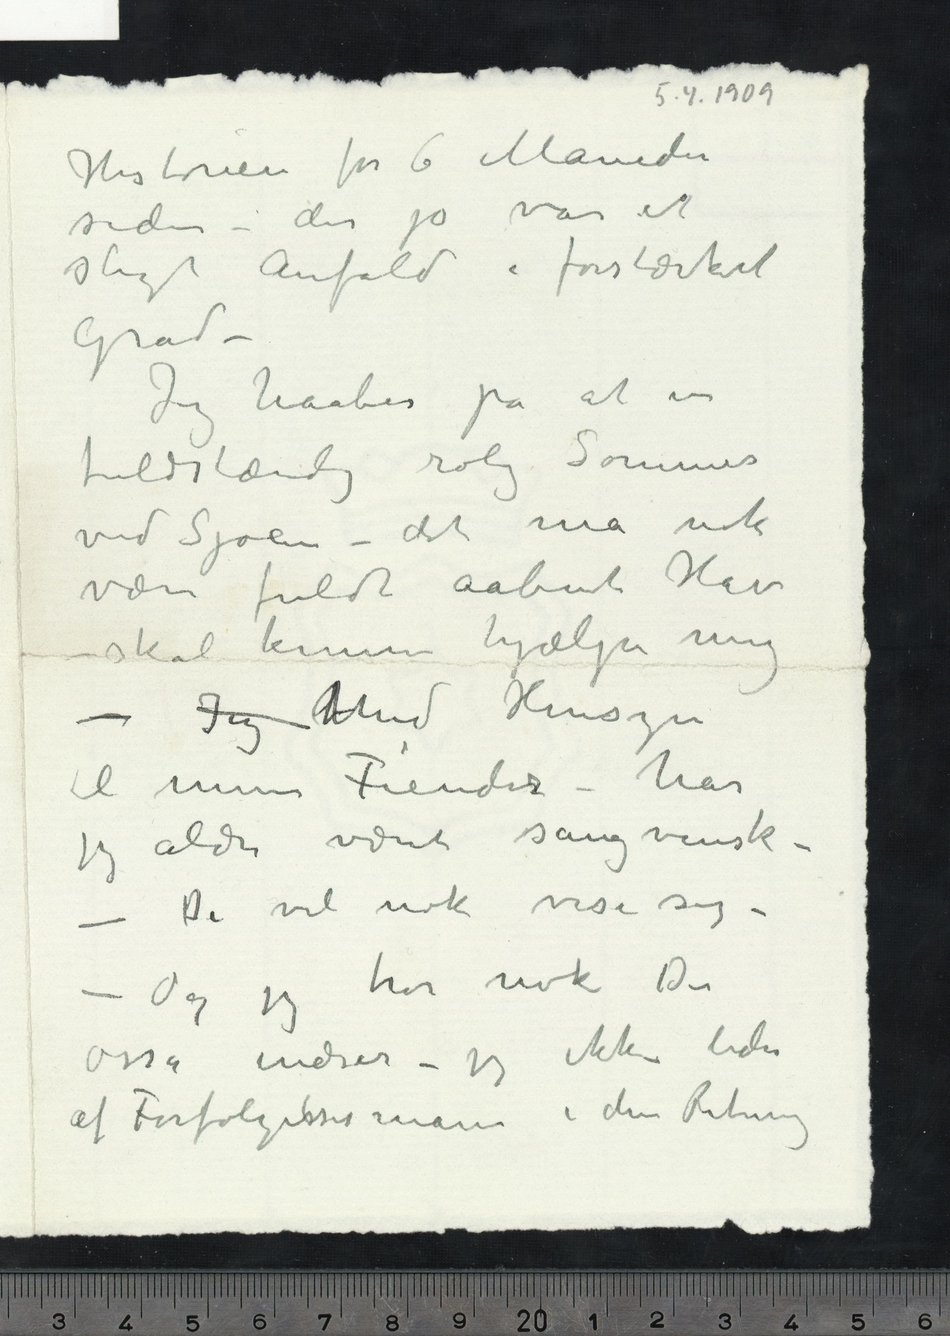 5.4.1909
Historien for 6 Maneder
siden – der jo var et
sligt Anfald i forstærket
Grad –
Jeg haaber på at en
fuldstændig rolig Sommer
ved Sjøen – det må nok
være fuldt aabent Hav
– skal kunne hjælpe mig
– Jeg Med Hensyn
til mine Fiender – har
jeg aldri været sangvinsk –
– De vil nok vise sig –
– Og jeg tror nok De
osså indser – jeg ikke lider
af Forfølgelsesmani i den Retning
3 4 5 6 7 8 9 20 1 2 3 4 5 6